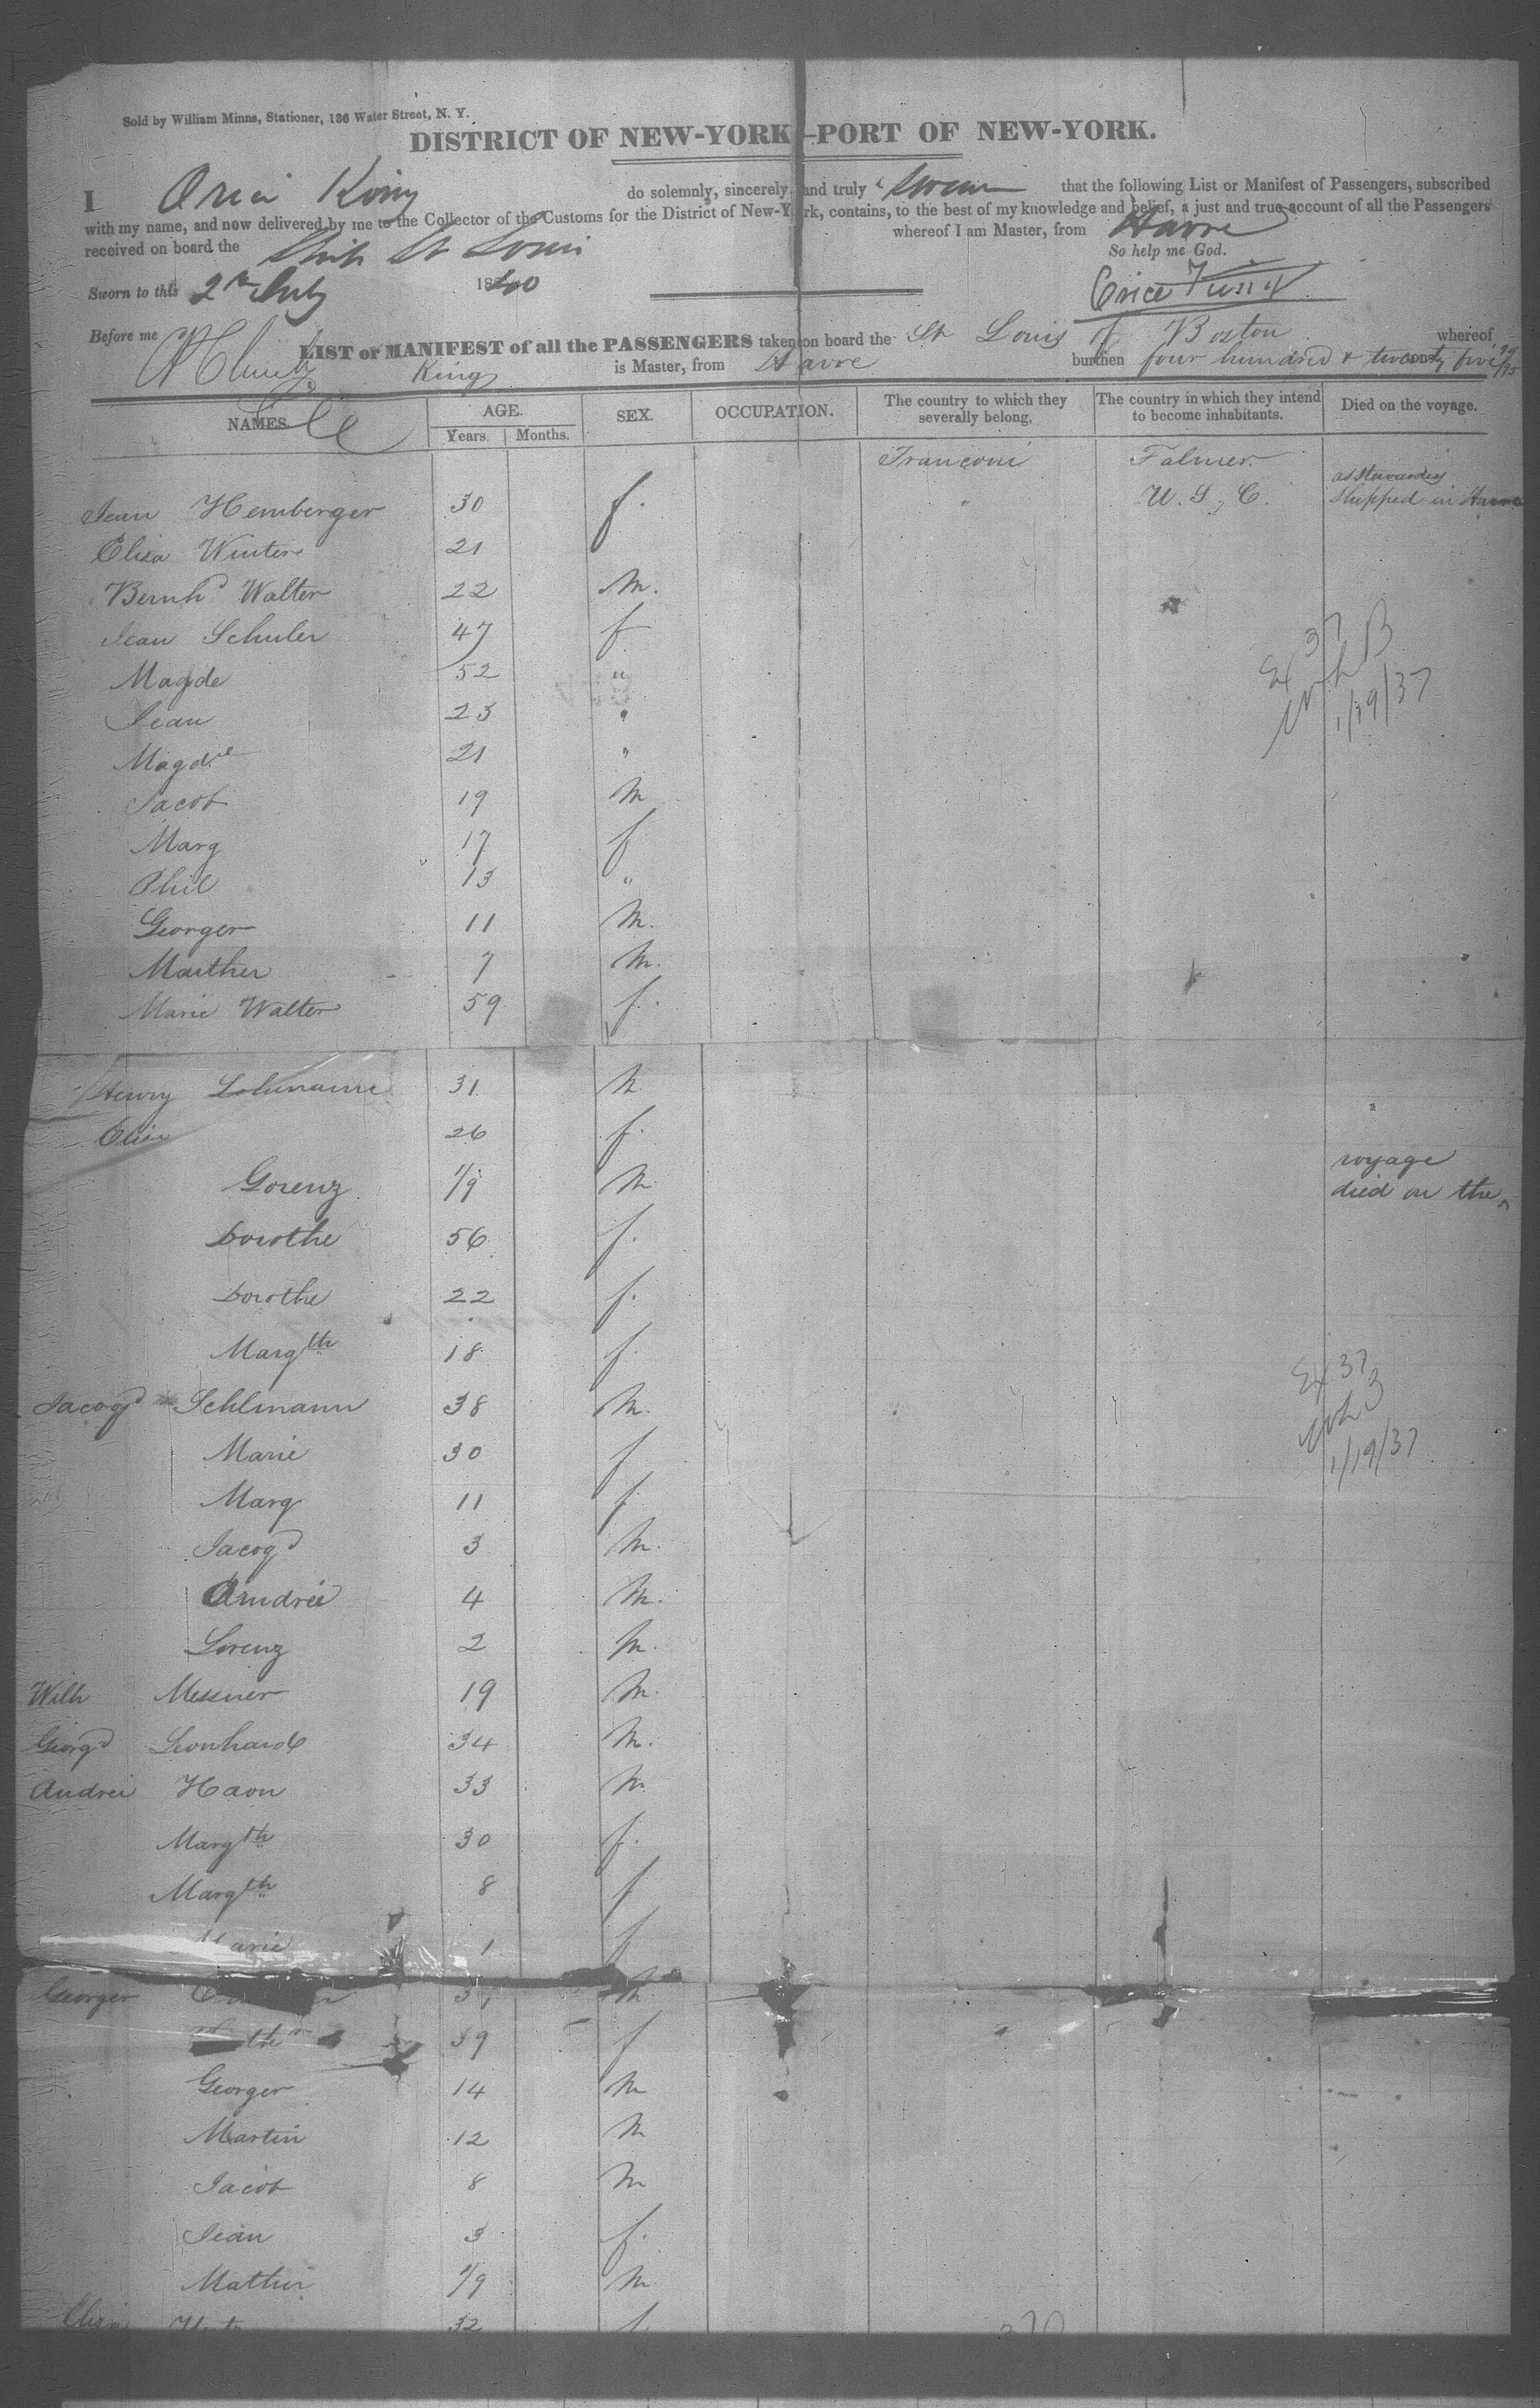 Sold by William Minns, Stationer, 136 Water Street, N. Y.
DISTRICT OF NEW-YORK—PORT OF NEW-YORK.
I King do solemnly, sincerely, and truly swear that the following List or Manifest of Passengers, subscribed
with my name, and now delivered by me to the Collector of the Customs for the District of New-York, contains, to the best of my knowledge and belief, a just and true account of all the Passengers
received on board the Ship St Louis whereof I am Master, from Havre
So help me God.
Sworn to this 2nd July 1840
Before me
LIST or MANIFEST of all the PASSENGERS taken on board the St Louis of Boston whereof
King is Master, from Havre burthen four hundred & twenty five tons
NAMES. AGE. SEX. OCCUPATION. The country to which they severally belong, The country in which they intend to become inhabitants. Died on the voyage.
Years. Months.
Jean Hemberger 30 f. " U. S. C. as Stewardess shipped in Havre
Elisa Winter 21
Bernhd Walter 22 M.
Jean Schuler 47 f
Magde 52 "
Jean 23 "
Magdle 21 "
Jacob 19 M
Marg 17 f
Phil 13 "
Georger 11 M.
Maither 7 M.
Marie Walter 59 f.
1/19/37
Henry 31 M
Elise 26 f.
Gorenz 1/9 M died on the voyage
Dorothe 56 f.
Dorothe 22 f.
Margth 18 f.
Jacogd Sehlmann 38 M.
Marie 30 f
Marg 11 f
Jacogd 3 M.
Andrei 4 M.
Lorenz 2 M.
1/19/37
Wilh Messner 19 M.
Georgd Leonhard 34 M.
Andrei Haon 33 M
Margth 30 f.
Margth 8 f
Marie 1 f
Georger M
39 f
Georger 14 M
Martin 12 M
Jacob 8 M
Jean 3 f.
Mathei 1/9 M
32